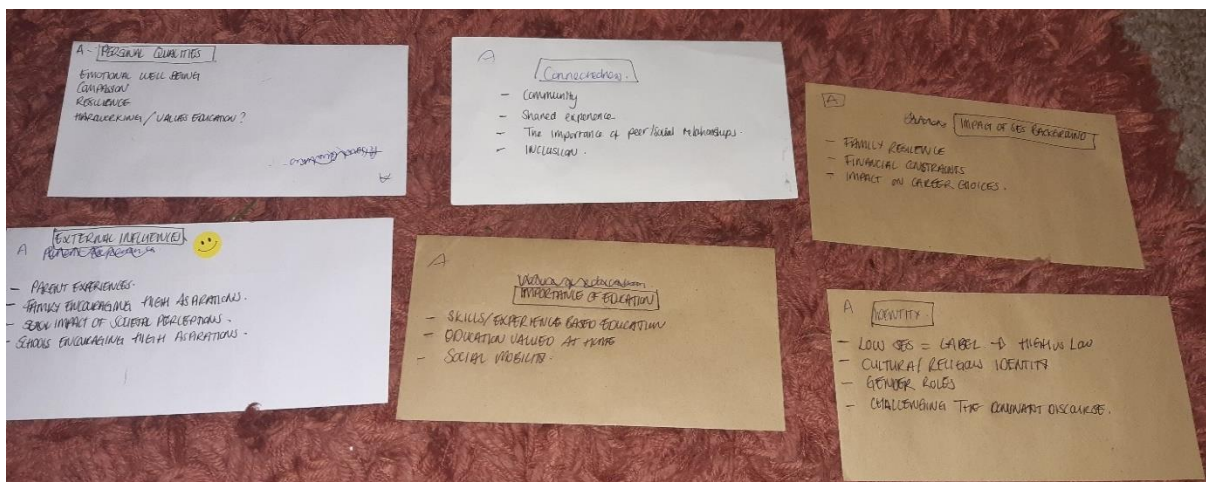 A - PERSONAL QUALITIES
EMOTIONAL WELL BEING
COMPASSION
RESILIENCE
HARDWORKING / VALUES EDUCATION?
A
A
Connectedness.
- Community
- Shared experience.
- The importance of peer/social relationships.
- INCLUSION.
A
IMPACT OF SES BACKGROUND
- FAMILY RESILIENCE
- FINANCIAL CONSTRAINTS
- IMPACT ON CAREER CHOICES.
EXTERNAL INFLUENCES
A
- PARENT EXPERIENCES.
- FAMILY ENCOURAGING HIGH ASPIRATIONS.
- IMPACT OF SOCIETAL PERCEPTIONS.
- SCHOOLS ENCOURAGING HIGH ASPIRATIONS.
A
IMPORTANCE OF EDUCATION
- SKILLS/EXPERIENCE BASED EDUCATION
- EDUCATION VALUED AT HOME
- SOCIAL MOBILITY.
A IDENTITY.
- LOW SES = LABEL → HIGH VS LOW
- CULTURAL/ RELIGIOUS IDENTITY
- GENDER ROLES
- CHALLENGING THE DOMINANT DISCOURSE.